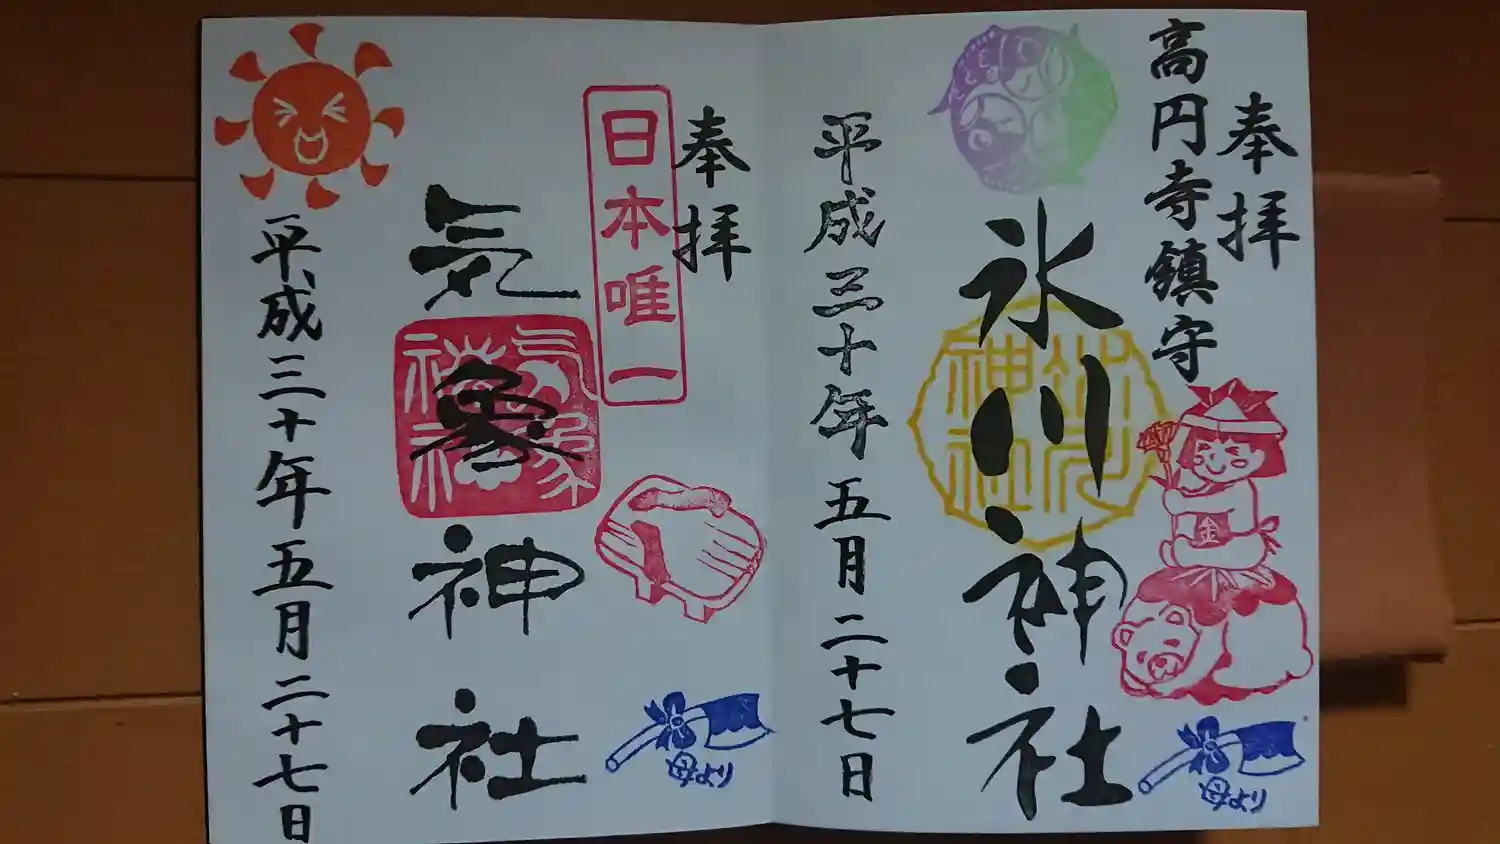 奉拝
高円寺鎮守
氷川神社
氷川神社
金
平成三十年五月二十七日
母より
奉拝
日本唯一
気象神社
気象神社
平成三十年五月二十七日
母より